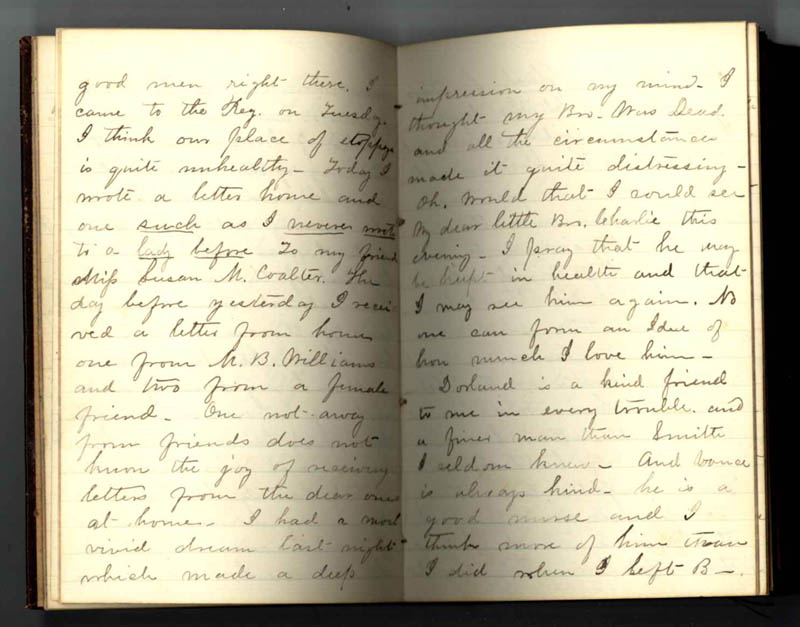 good men right there. I
came to the Reg. on Tuesday.
I think our place of stoppage
is quite unhealthy - Today I
wrote a letter home and
one such as I never wrote
to a lady before To my friend
Miss Susan M. Coalter. The
day before yesterday I recei-
ved a letter from home
one from M. B. Williams
and two from a female
friend - One not away
from friends does not
know the joy of receiving
letters from the dear ones
at home - I had a most
vivid dream last night
which made a deep
impression on my mind - I
thought my Bro. Was Dead.
and all the circumstances
made it quite distressing -
Oh, would that I could see
My dear little Bro. Charlie this
evening - I pray that he may
be kept in health and that
I may see him again. No
one can form an Idea of
how much I love him -
Dorland is a kind friend
to me in every trouble. and
a finer man than Smith
I seldom knew - And Vance
is always kind - he is a
good nurse and I
think more of him than
I did when I left B -.